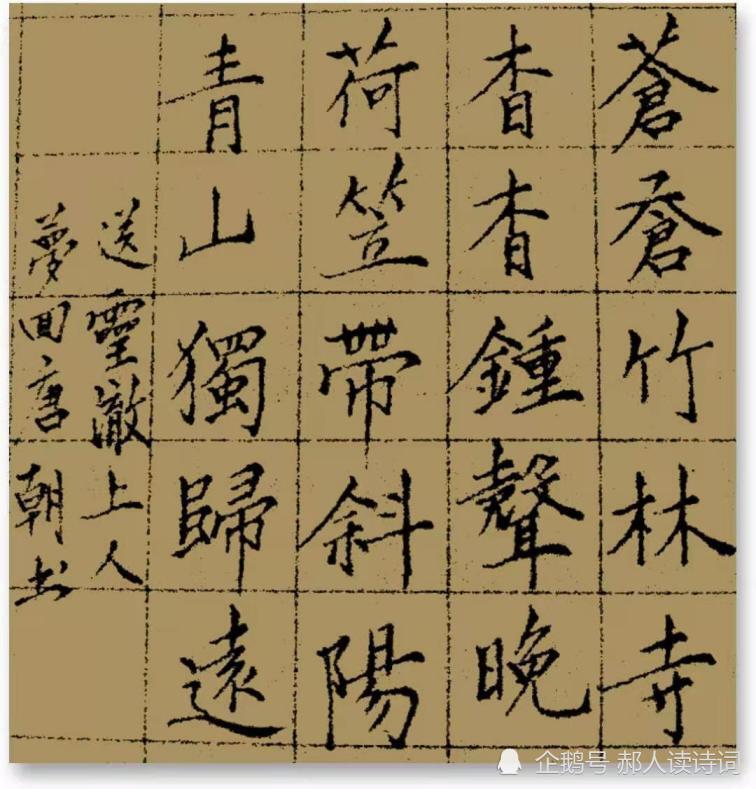 蒼蒼竹林寺
杳杳鍾聲晚
荷笠帶斜陽
青山獨歸遠
送靈澈上人
夢回唐朝书
企鹅号 郝人读诗词